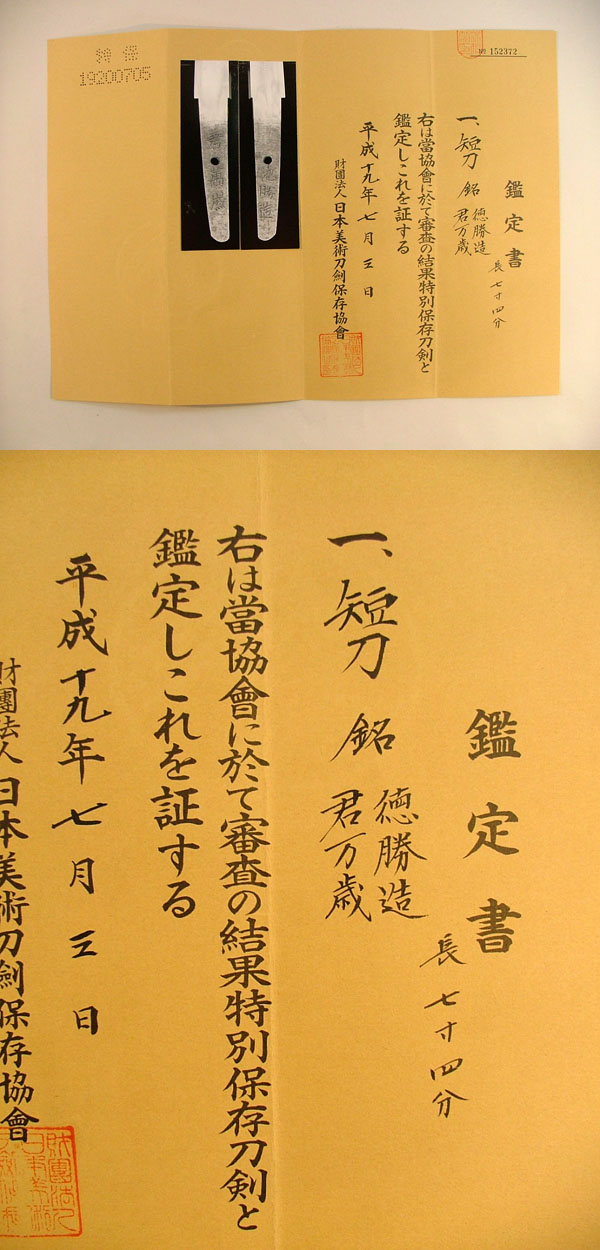 № 152372
鑑定書
一、短刀 銘 徳勝造
君万歳
長七寸四分
右は當協會に於て審査の結果特別保存刀剣と
鑑定しこれを証する
平成十九年七月三日
財團法人 日本美術刀劍保存協會
特保
19200705
鑑定書
一、短刀 銘 徳勝造
君万歳
長七寸四分
右は當協會に於て審査の結果特別保存刀剣と
鑑定しこれを証する
平成十九年七月三日
財團法人 日本美術刀劍保存協會